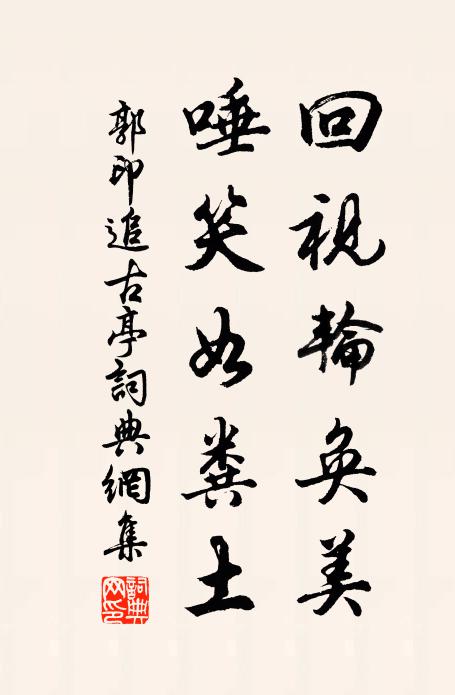 回視輪奐美
唾笑如糞土
郭印追古亭詞典網集
詞典网印